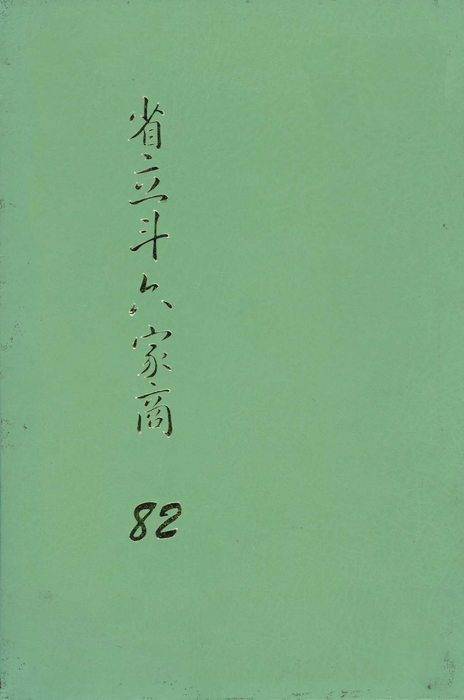 省立斗六家商
82